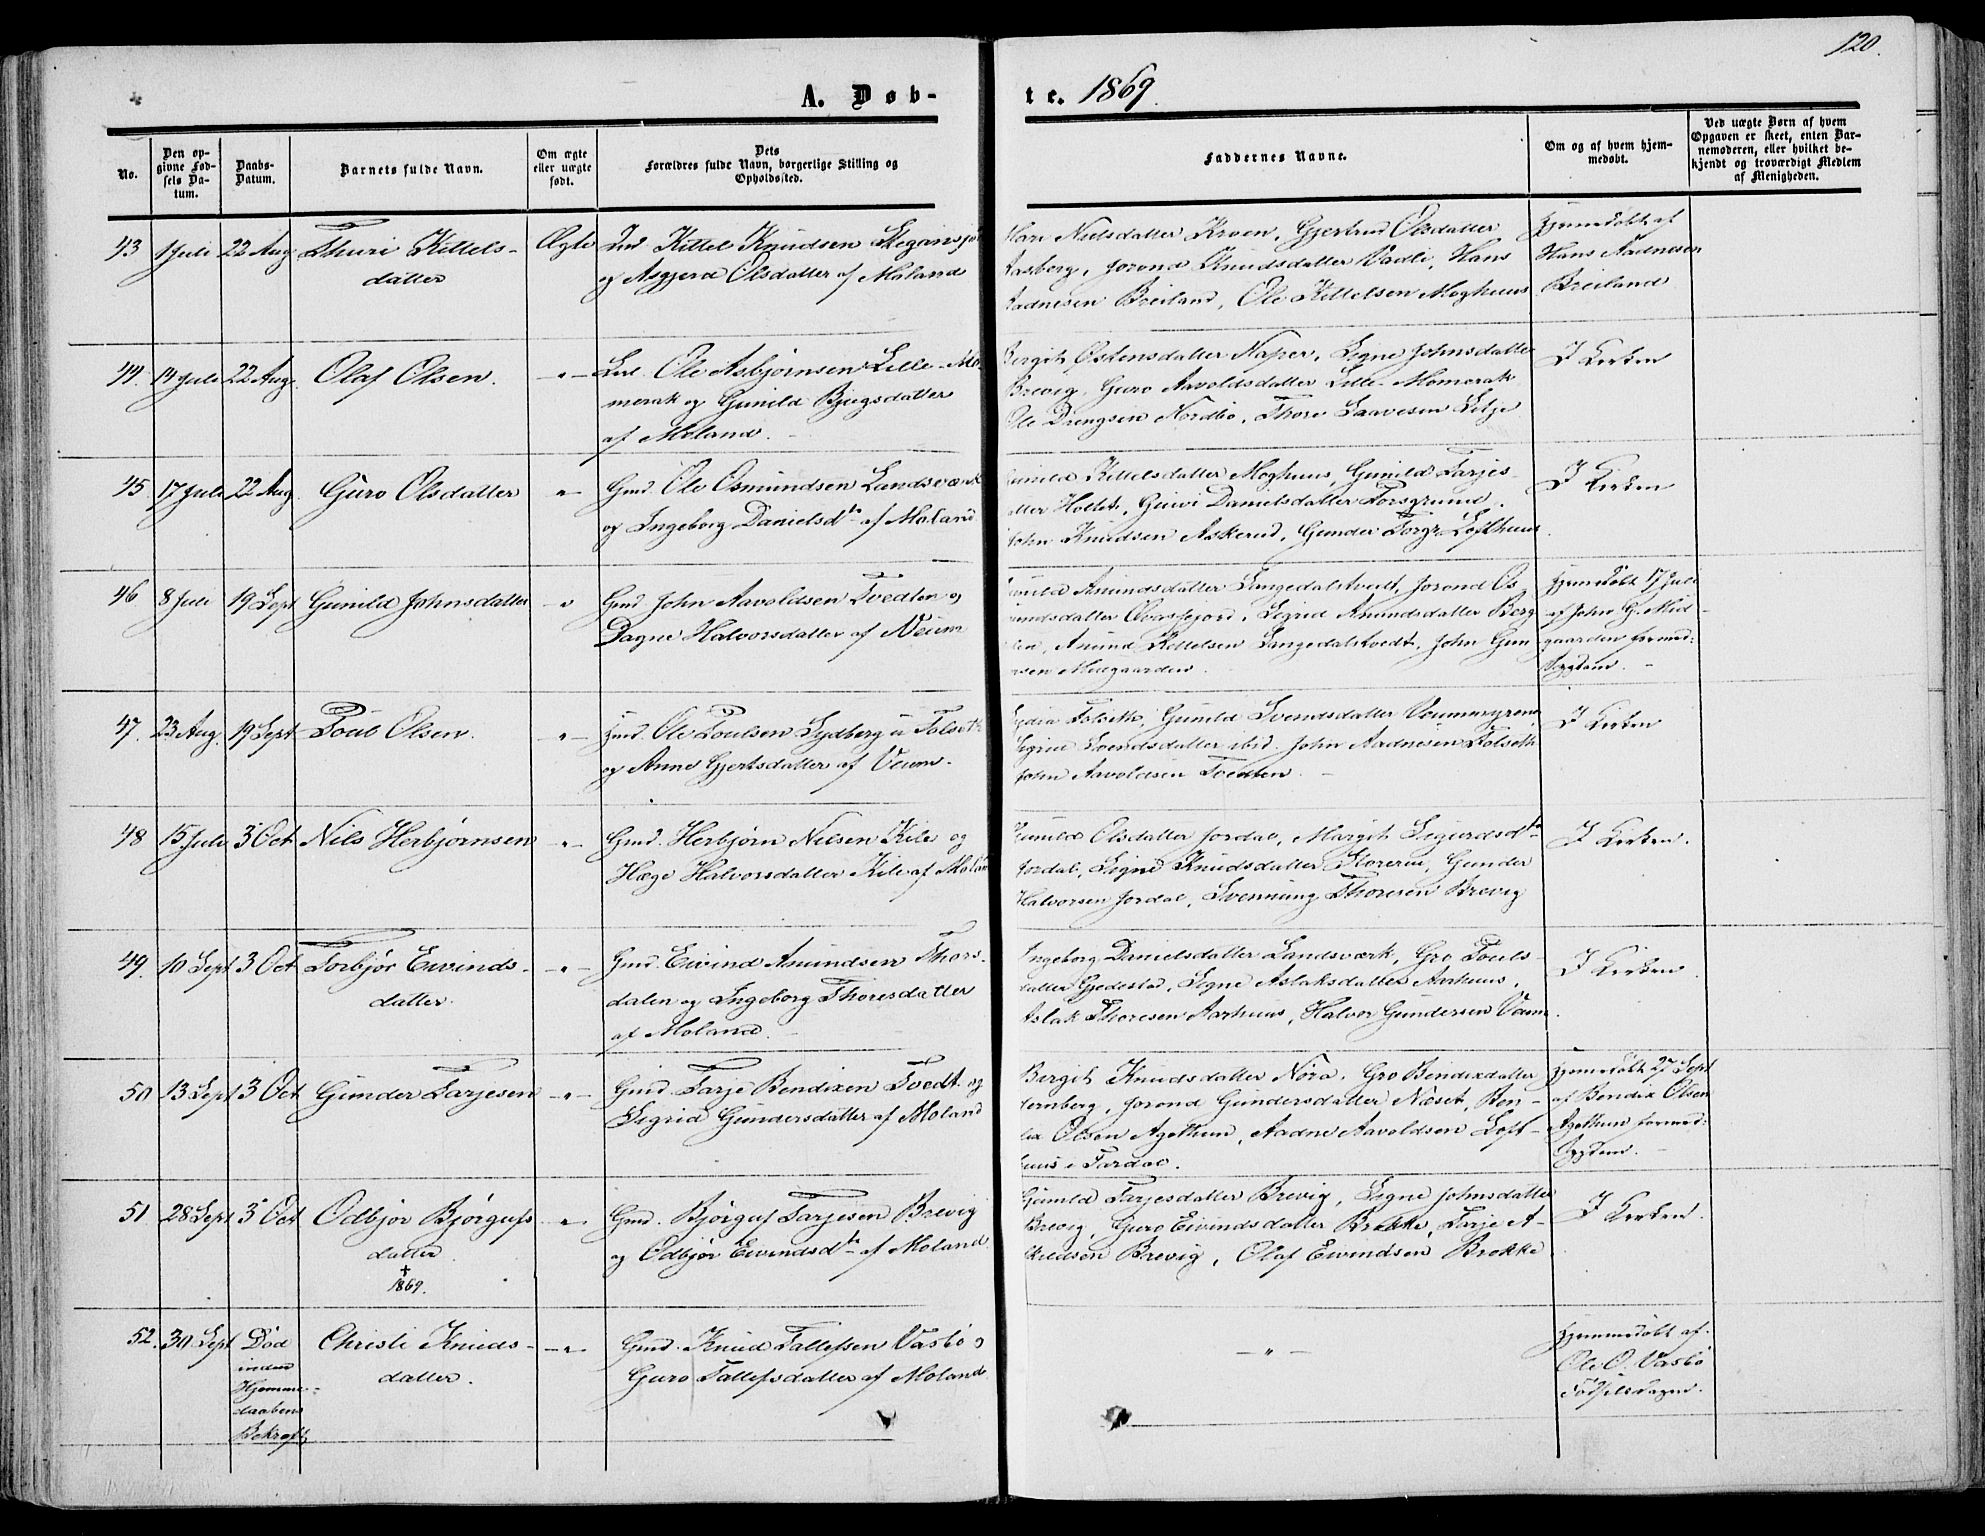 120.
A. Døb-
te. 1869.
No.
Den op-
givne Fød-
sels Da-
tum.
Daabs-
Datum.
Barnets fulde Navn.
Om ægte
eller uægte
født.
Dets
Forældres fulde Navn, borgerlige Stilling og
Opholdssted.
Faddernes Navne.
Om og af hvem hjem-
medøbt.
Ved uægte Børn af hvem
Opgaven er skeet, enten Bar-
nemoderen, eller hvilket be-
kjendt og troværdigt Medlem
af Menigheden.
43 1 Juli 22 Aug Thuri Kittels-
datter
Ægte
Ind. Kittel Knudsen
og Asgjerd Olsdatter af Moland
Nielsdatter Kroen, Gjertrud Olsdatter
Aasberg, Jorond Knudsdatter Vadli, Hans
Aadnesen Breiland, Ole Kittelsen Moghuus
Hjemmedøbt af
Hans Aadnesen
Breiland
44. 14 Juli 22 Aug Olaf Olsen. -"-
Ole Asbjørnsen Lille-Mo-
merak og Gunild Bjugsdatter
af Moland.
Bergit Østensdatter Naper, Signe Johnsdatter
Brevig, Guro Aavoldsdatter Lille-Momerak
Ole Drengsen Nordbø, Thore Saavesen Lilje
I Kirken
45 17 Juli 22 Aug Guro Olsdatter "
Gmd. Ole Osmundsen Landsværk
og Ingeborg Danielsdtr af Moland
Gunild Kittelsdatter Moghuus, Gunild Tarjes-
datter Holtet, Danielsdatter Forsgrund.
John Knudsen Askerud, Gunder Torgr. Lofthuus
I Kirken
46 8 Juli 19 Sept Gunild Johnsdatter -"
Gmd John Aavoldsen Tvedten og
Dagne Halvorsdatter af Veum
Gunild Amundsdatter Langedalstvedt, Jorond Os-
mundsdatter Øvrefjord, Sigrid Anundsdatter Berg
Anund Kittelsen Langedalstvedt, John Gun-
Midgaarden.
Hjemmedøbt 17 Juli
af John G. Mid-
gaarden formed:
Sygdom. -
47. 23 Aug. 19 Sept Poul Olsen. -"-
Ole Poulsen Lydberg u Folseth
og Anne Gjertsdatter af Veum-
Lydia Folseth, Gunild Svendsdatter Veummyrene,
Sigrid Svendsdatter ibid. John Aadnesen Folseth
John Aavoldsen Tvedten. -
I Kirken
48 15 Juli 3 Oct Nils Herbjørnsen -"-
Gmd. Herbjørn Nilsen Kile og
Hæge Halvorsdatter Kile af Moland
Gunild Olsdatter Jordal, Margit Sigurdsdtr
Jordal, Signe Knudsdatter Storerui, Gunder
Halvorsen Jordal, Svennung Thoresen Brevig
I Kirken.
49. 10 Sept 3 Oct Torbjør Eivinds-
datter. -"-
Gmd. Eivind Anundsen Thors-
dalen og Ingeborg Thoresdatter
af Moland. -
Ingeborg Danielsdatter Landsværk, Gro Pouls-
datter Gjedestad, Signe Aslaksdatter Aarhuus,
Aslak Thoresen Aarhuus, Halvor Gundersen
I Kirken
50 13 Sept 3 Oct Gunder Tarjesen -"-
Gmd. Tarje Bendixen Tvedt og
Sigrid Gundersdatter af Moland
Bergit Knudsdatter Nora, Gro Bendixdatter
Jorond Gundersdatter Næset, Ben-
dix Olsen Agethun, Aadne Aavoldsen Loft-
huus i Fardal.
Hjemmedøbt 27 Sept
af Bendix Olsen
Agethun formed:
Sygdom. -
51 28 Sept 3 Oct Odbjør Bjørgufs
datter.
†
1869. -"-
Gmd. Bjørguf Tarjesen Brevig
og Odbjør Eivindsdtr af Moland.
Gunild Tarjesdatter Brevig, Signe Johnsdatter
Brevig, Guro Eivindsdatter Brokke, Tarje A-
Brevig, Olaf Eivindsen Brokke
I Kirken.
52. 30 Sept Død
inden
Hjemme-
daabens
Bekræft.
Christi Knuds-
datter. -"-
Gmd. Knud Tallefsen Vasbø og
Guro Tallefsdatter af Moland
-"-
Hjemmedøbt af
Ole O. Vasbø
Fødselsdagen.